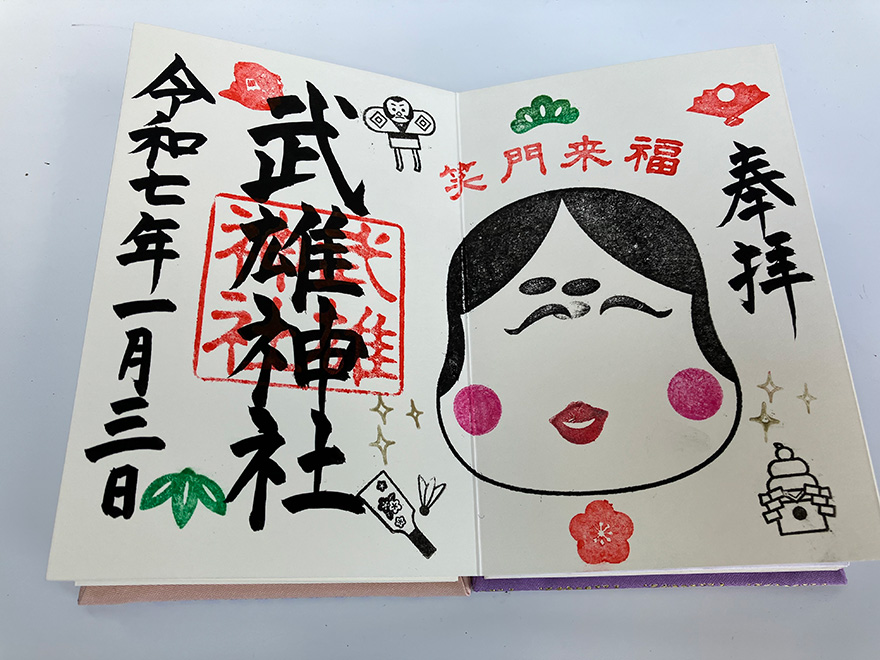 奉拝
笑門来福
武雄神社
武雄
神社
令和七年一月三日